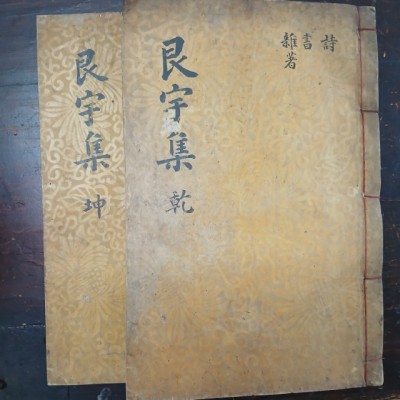 詩
書
雜著
艮宇集 乾
艮宇集 坤